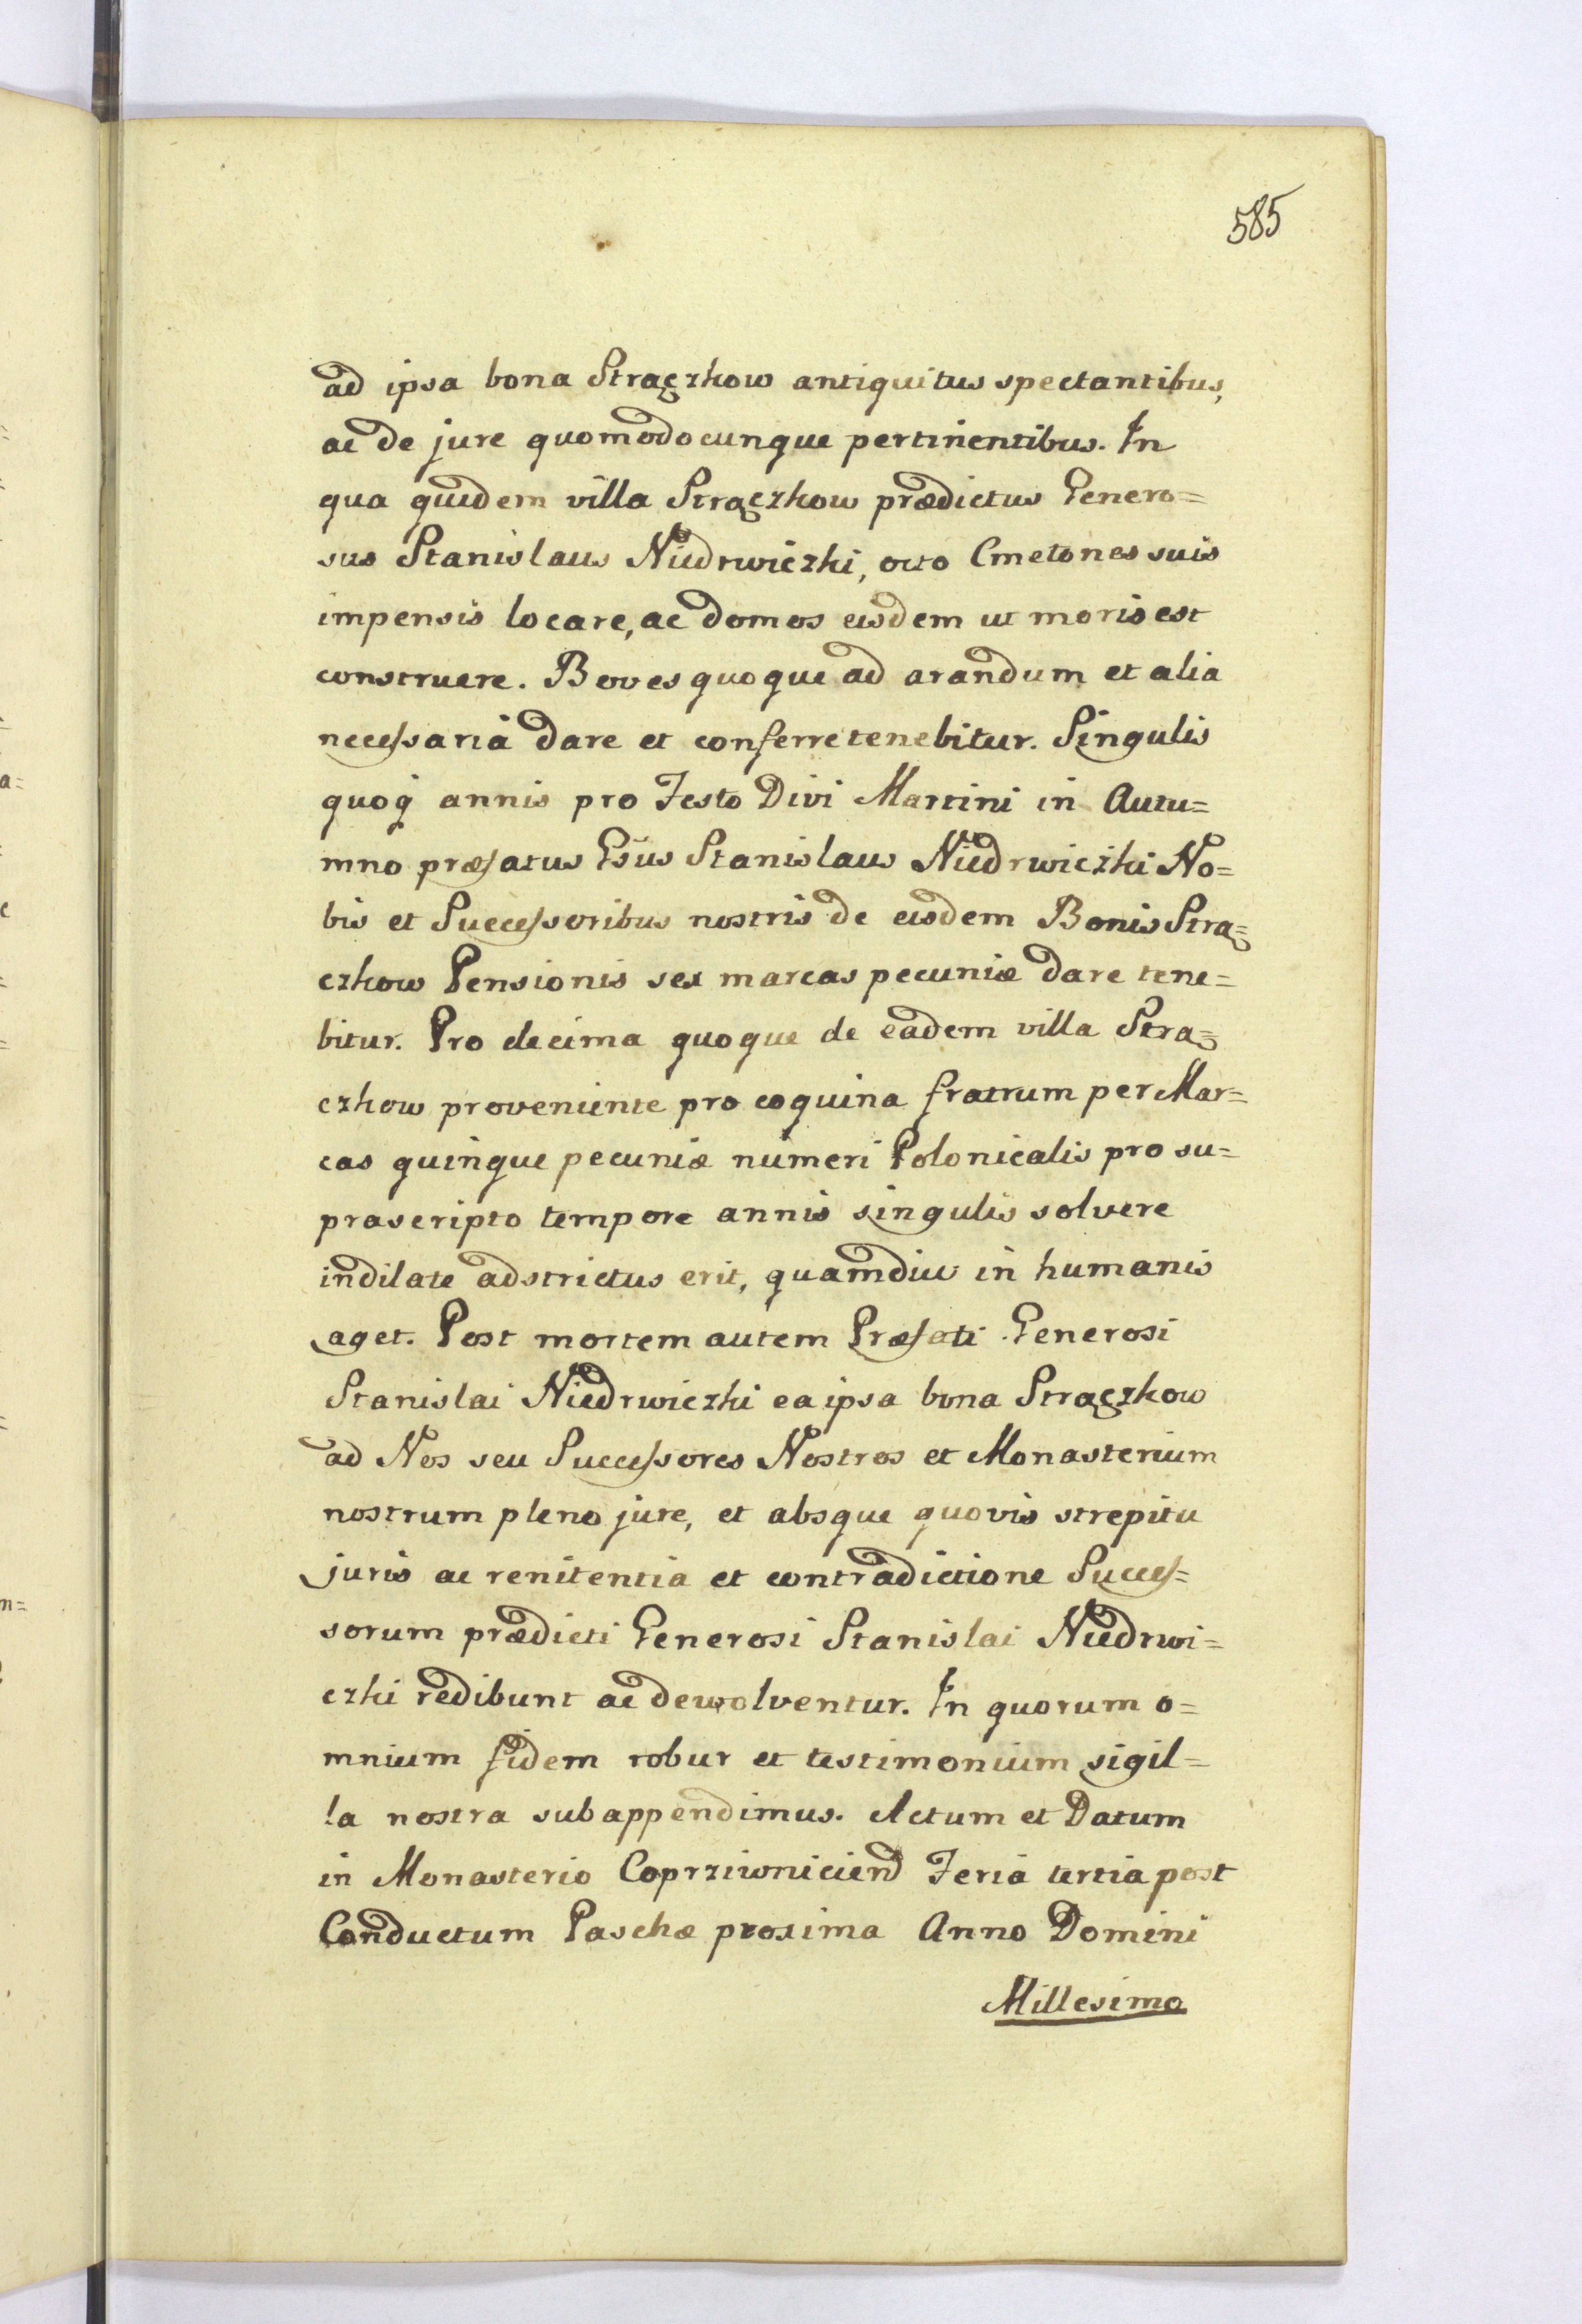 585
ad ipsa bona Strączkow antiquitus spectantibus,
ac de jure quomodocunque pertinentibus. In
qua quidem villa Strączkow prædictus Genero=
sus Stanislaus Niedrwiczki, octo Cmetones suis
impensis locare, ac domos eisdem ut moris est
construere. Boves quoque ad arandum et alia
necessaria dare et conferre tenebitur. Singulis
quoq̃ annis pro Festo Divi Martini in Autu=
mno præfatus Gs̃us Stanislaus Niedrwiczki No=
bis et Successoribus nostris de eisdem Bonis Strą=
czkow Pensionis sex marcas pecuniæ dare tene=
bitur. Pro decima quoque de eadem villa Strą=
czkow proveniente pro coquina fratrum per Mar=
cas quinque pecuniæ numeri Polonicalis pro su=
prascripto tempore annis singulis solvere
indilate adstrictus erit, quamdiu in humanis
aget. Post mortem autem Præfati Generosi
Stanislai Niedrwiczki ea ipsa bona Strączkow
ad Nos seu Successores Nostros et Monasterium
nostrum pleno jure, et absque quovis strepitu
juris ac renitentia et contradictione Succes=
sorum prædicti Generosi Stanislai Niedrwi=
czki redibunt ac dewolventur. In quorum o=
mnium fidem robur et testimonium sigil=
la nostra subappendimus. Actum et Datum
in Monasterio Coprziwnicien̄ Feria tertia post
Conductum Paschæ proxima Anno Domini
Millesimo